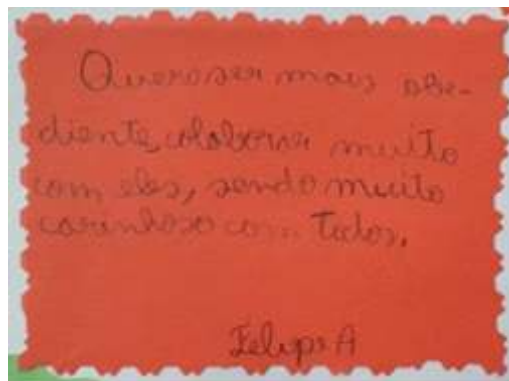 Quero ser mais obe-
diente, colaborar muito
com eles, sendo muito
carinhoso com todos.
Felipe A